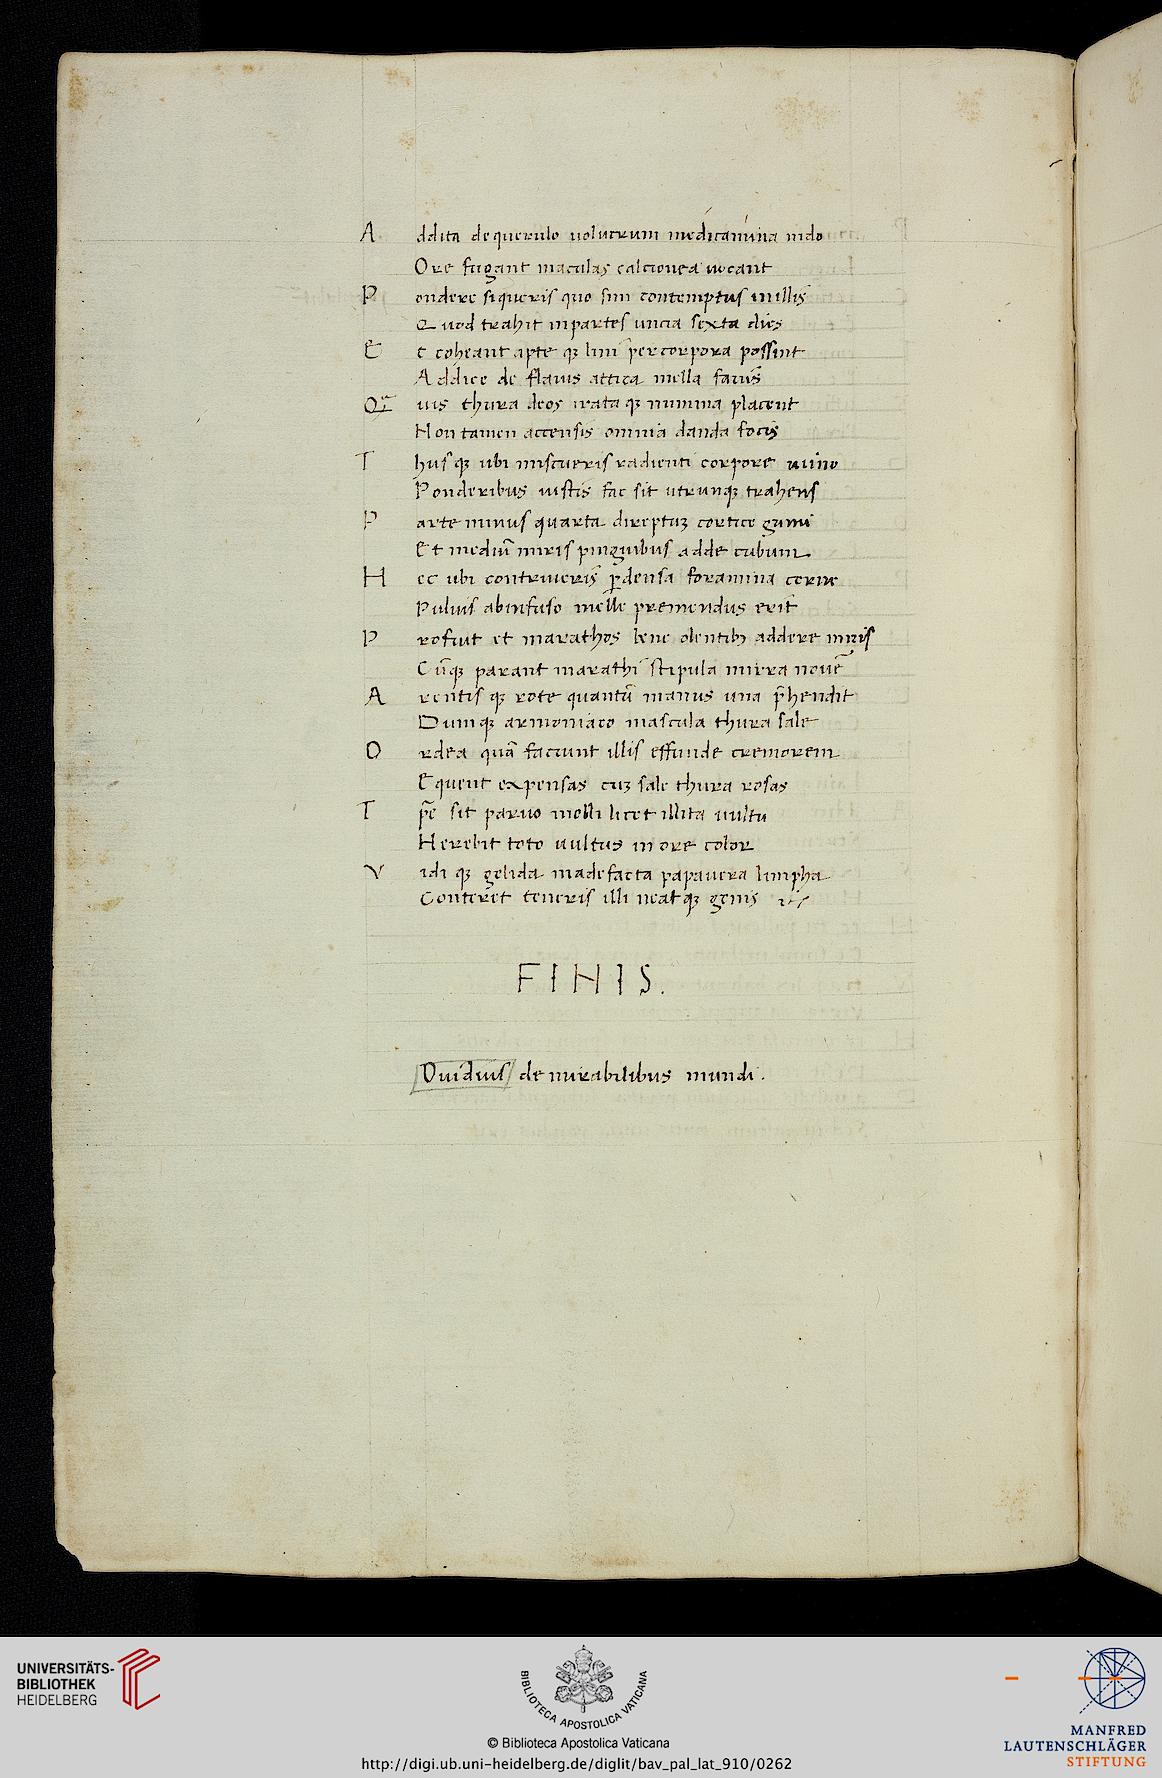 A ddita de querulo uolucrum medicamina nido
Ore fugant maculas calcionea uocant
P ondere si queris quo sim contemptus in illis
Quod trahit in partes uncia sexta dies
E t coheant apte qȝ lini per corpora possint
Addice de flauis attica mella fauis
Q uis thura deos irata qȝ numina placent
Non tamen accensis omnia danda focis
T hus qȝ ubi miscueris radienti corpore
Ponderibus iustis fac sit utrunqȝ trahens
P arte minus quarta direptuȝ cortice gumi
Et mediū miris pinguibus adde cubum
H ec ubi contriueris ꝑ densa foramina cerne
Puluis ab infuso melle premendus erit
P rofiut et marathos bene olentibȝ addere miris
Cūqȝ parant marathi stipula mirra nouē
A rentis qȝ rote quantū manus una p̄hendit
Dumqȝ armoniaco mascula thura sale
O rdea quā faciunt illis effunde cremorem
Equent expensas cuȝ sale thura rosas
T p̄e sit paruo molli licet illita uultu
Herebit toto uultus in ore color
V idi qȝ gelida madefacta papauera limpha
Conteret teneris illi neat qȝ genis
FINIS.
Ouidius de mirabilibus mundi.
UNIVERSITÄTS-
BIBLIOTHEK
HEIDELBERG
BIBLIOTECA APOSTOLICA VATICANA
© Biblioteca Apostolica Vaticana
http://digi.ub.uni-heidelberg.de/diglit/bav_pal_lat_910/0262
MANFRED
LAUTENSCHLÄGER
STIFTUNG